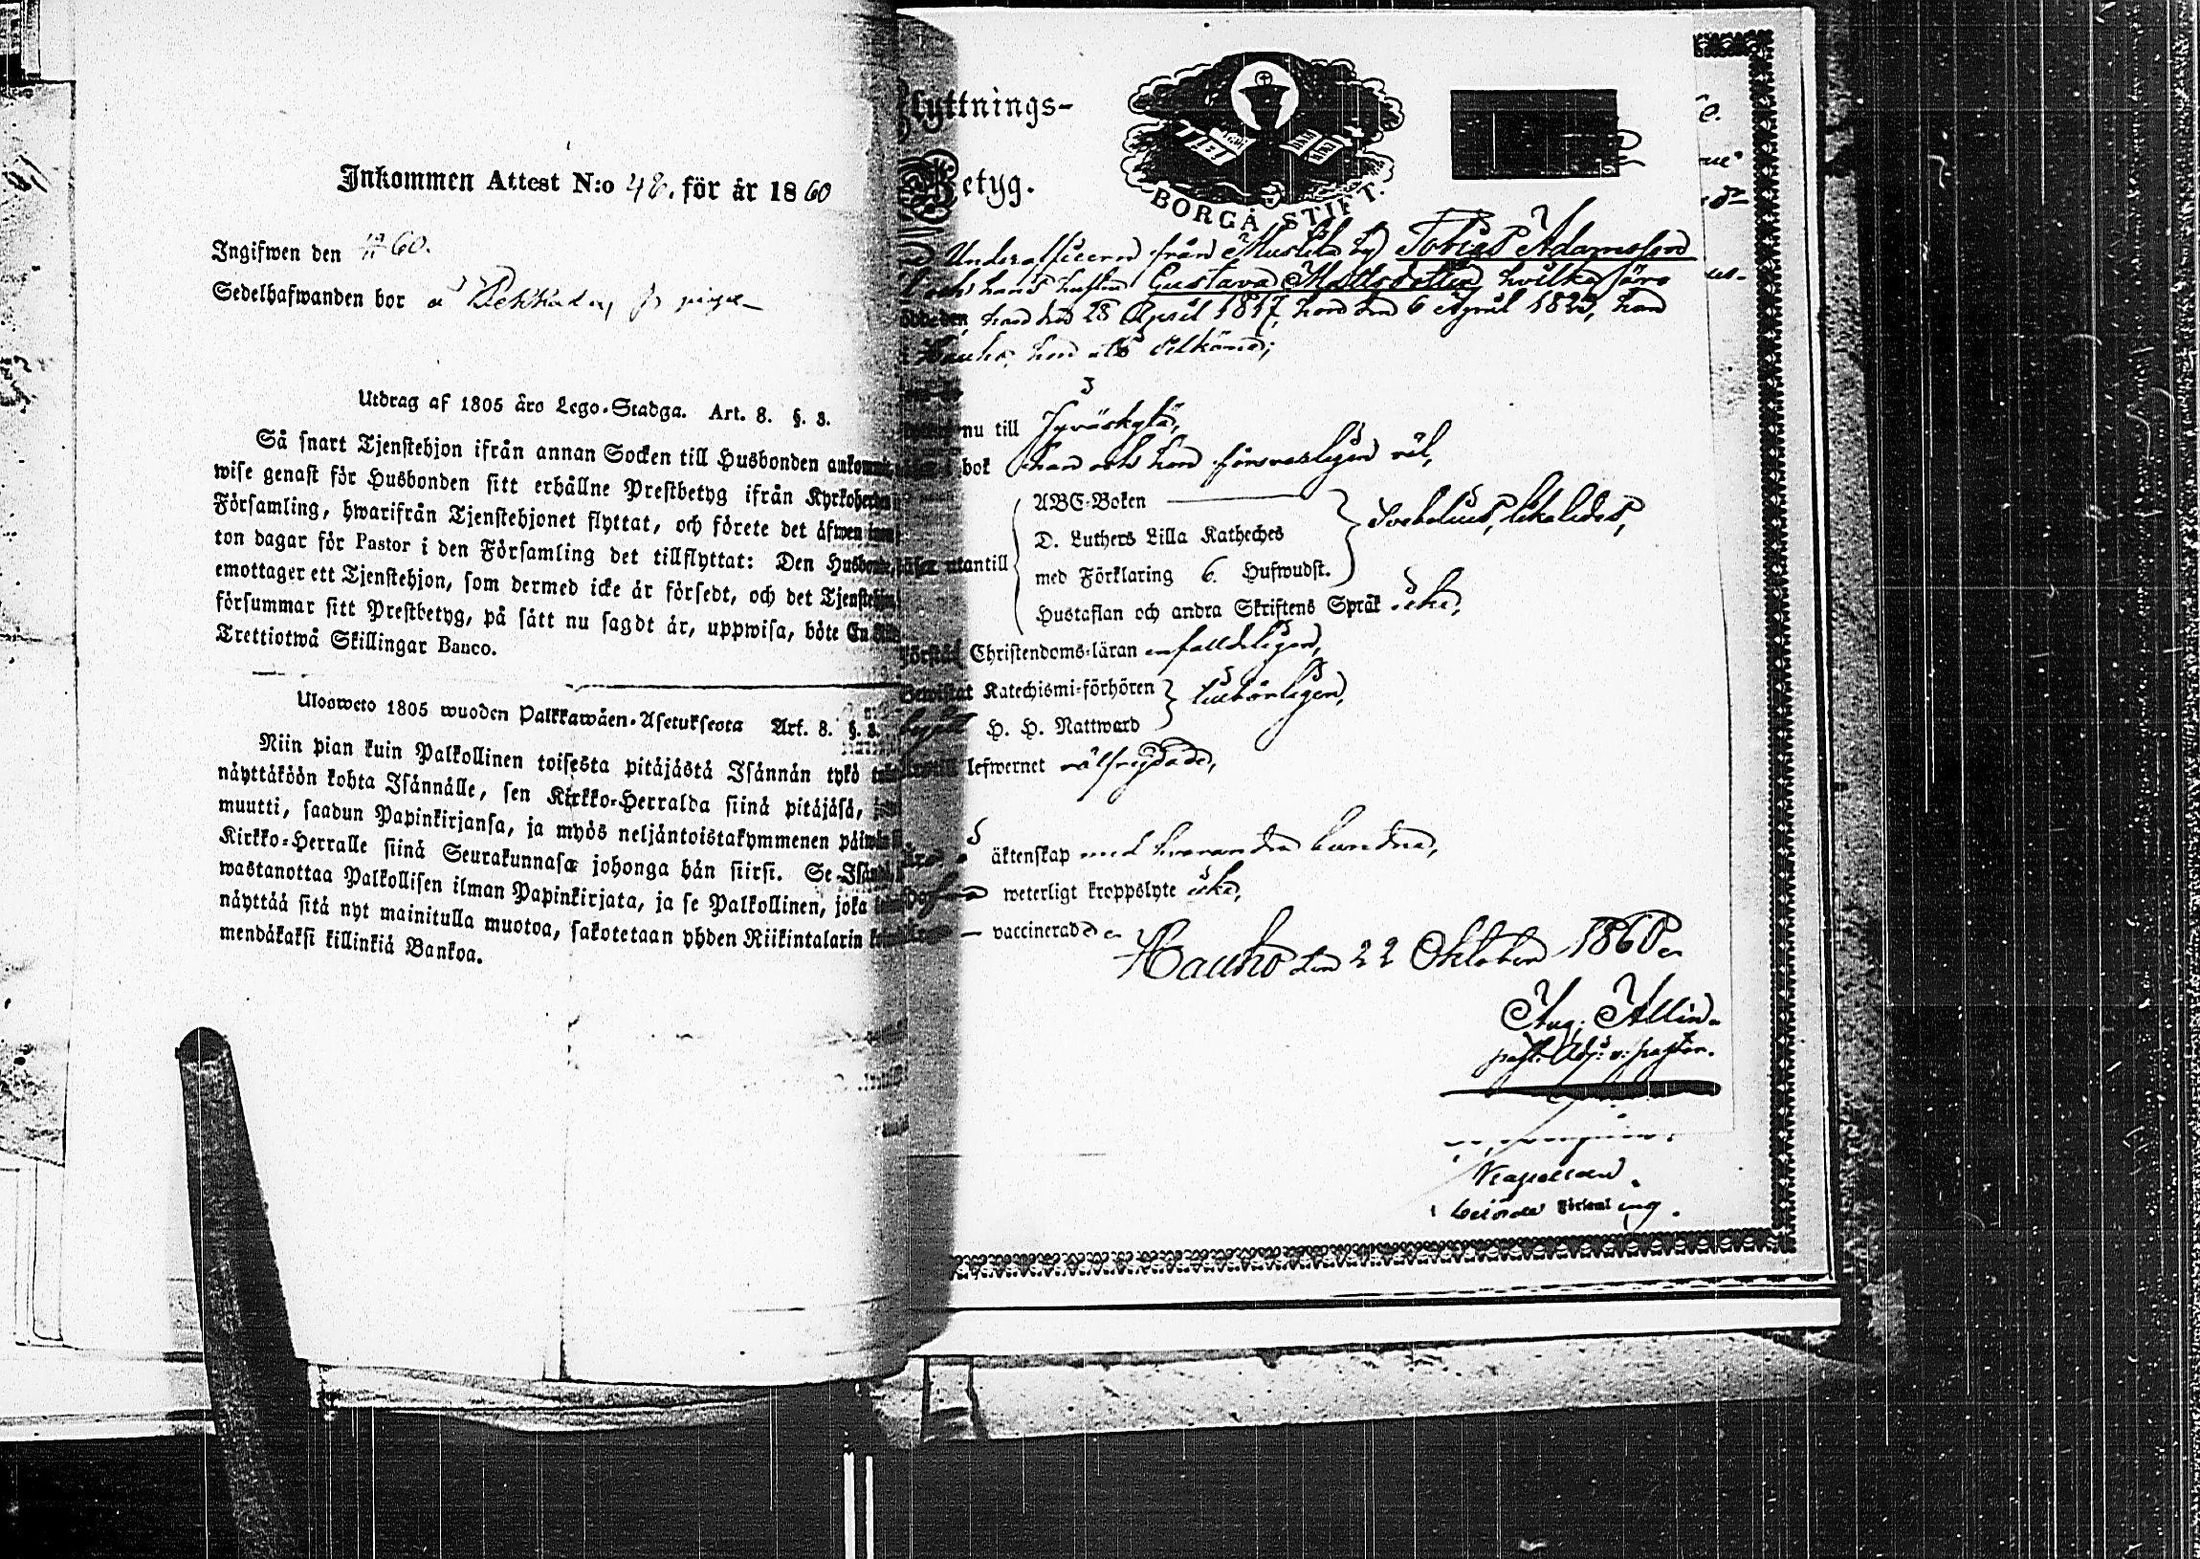 Inkommen Attest N:o 48. för år 1860
Ingifwen den
Sedelhafwanden bor å
Utdrag af 1805 års Lego-Stadga. Art. 8. §. 3.
Så snart Tjenstehjon ifrån annan Socken till Husbonden
wise genast för Husbonden sitt erhållne Prestbetyg ifrån
Församling, hwarifrån Tjenstehjonet flyttat, och förete det äfwen
ton dagar för Pastor i den Församling det tillflyttat: Den
emottager ett Tjenstehjon, som dermed icke är försedt, och det
försummar sitt Prestbetyg, på sätt nu sagdt är, uppwisa, böte En
Trettiotwå Skillingar Banco.
Ulosweto 1805 wuoden Palkkawäen-Asetuksesta Art. 8. §. 3.
Niin pian kuin Palkollinen toisesta pitäjästä Isännän tykö
näyttäköön kohta Isännälle, sen Kirkko-Herralda siinä pitäjäsä,
muutti, saadun Papinkirjansa, ja myös neljäntoistakymmenen
Kirkko-Herralle siinä Seurakunnasa johonga hän siirsi. Se
wastanottaa Palkollisen ilman Papinkirjata, ja se Palkollinen, joka
näyttää sitä nyt mainitulla muotoa, sakotetaan yhden Riikintalarin
mendäkaksi killinkiä Bankoa.
Flyttnings-
Betyg.
BORGÅ STIFT.
Underofficern från Muslila by Tobias Adamsson
och hans hustru Gustava Mattsdotter hvilka äro
födde, han den 28 April 1817, hon den 6 April 1823, han
i Hauho, hon
nu till Jyväskylä,
bok han och hon försvarligen väl,
ABC-Boken
D. Luthers Lilla Katheches
med Förklaring 6. Hufwudst.
Svebelius, likaledes,
utantill
Hustaflan och andra Skriftens Språk icke,
Förstår Christendoms-läran enfaldeligen,
Bewistat Katechismi-förhören
begått H. H. Nattward
tillbörligen,
lefwernet välfrejdade,
äktenskap med hvarandra bundna,
weterligt kroppslyte icke,
vaccinerade
Hauho den 22 Oktober 1860
Aug. Allin.
past. Adj. v. pastor.
Kapellan.
Församl